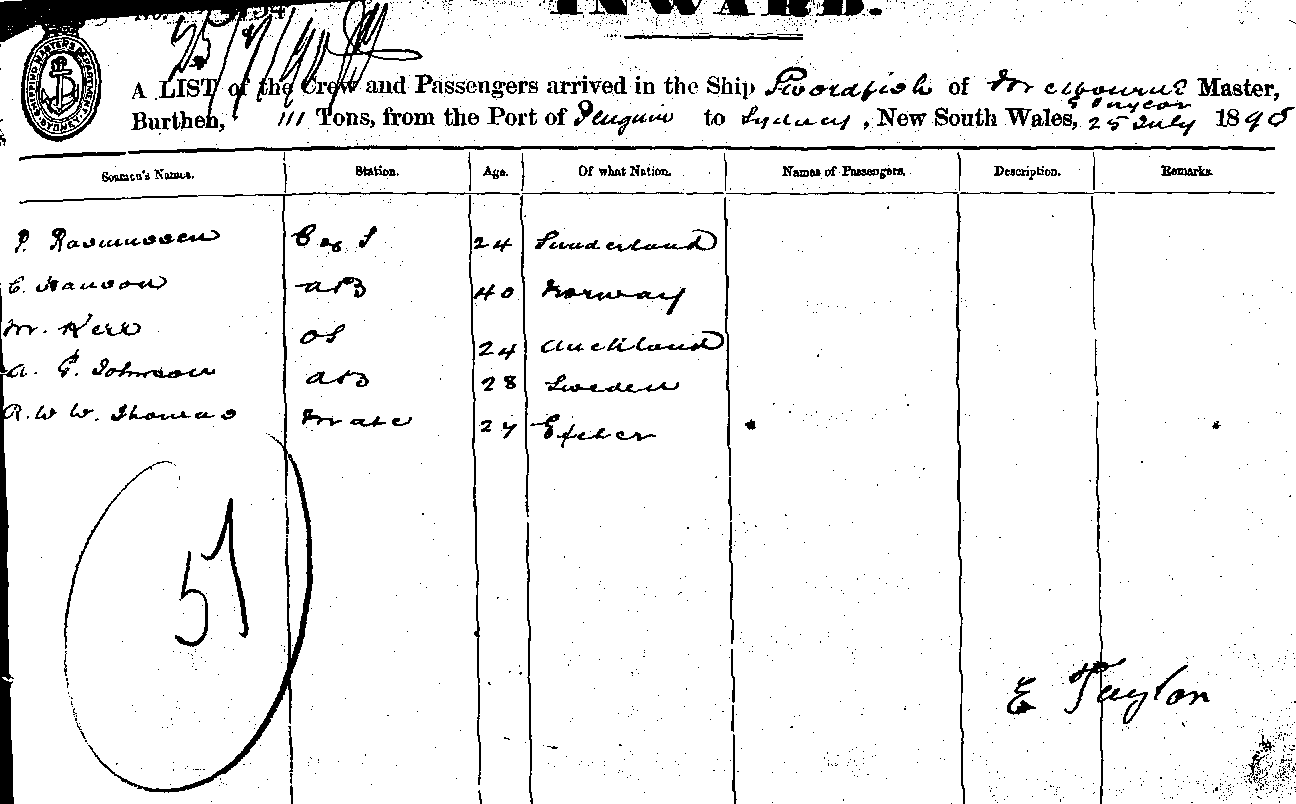 INWARD.
25/7/95
A LIST of the Crew and Passengers arrived in the Ship Swordfish of Melbourne Master,
E Taylor
Burthen, 111 Tons, from the Port of Penguin to Sydney, New South Wales, 25 July 1895
Seamen's Names. Station. Age. Of what Nation. Names of Passengers. Description. Remarks.
P. Rasmussen C & S 24 Sunderland
C. Hanson AB 40 Norway
M. Kerr OS 24 Auckland
A. G. Johnson AB 28 Sweden
R. W. W. Thomas Mate 27 Exeter
51
E Taylor